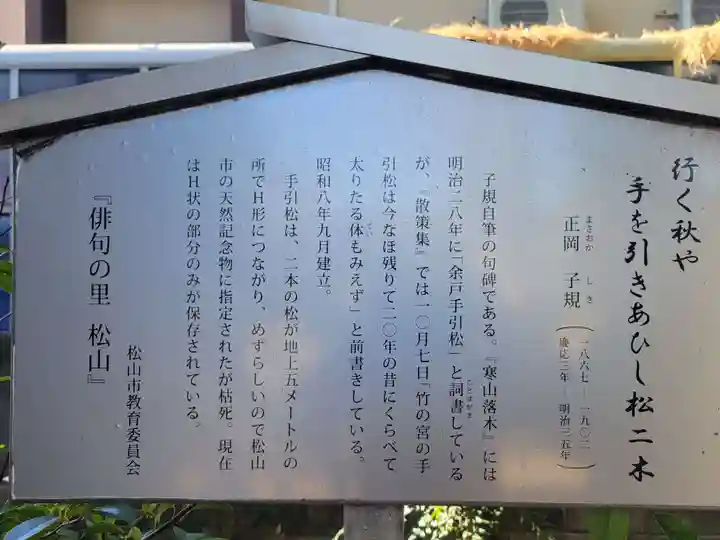 行く秋や
手を引きあひし松二木
まさおか しき
正岡 子規
(一八六七―一九〇二
慶応三年―明治三五年)
子規自筆の句碑である。『寒山落木』には
明治二八年に「余戸手引松」と詞書している
ことばがき
が、『散策集』では一〇月七日「竹の宮の手
引松は今なほ残りて二〇年の昔にくらべて
太りたる体もみえず」と前書きしている。
てい
昭和八年九月建立。
手引松は、二本の松が地上五メートルの
所でH形につながり、めずらしいので松山
市の天然記念物に指定されたが枯死。現在
はH状の部分のみが保存されている。
松山市教育委員会
『俳句の里 松山』